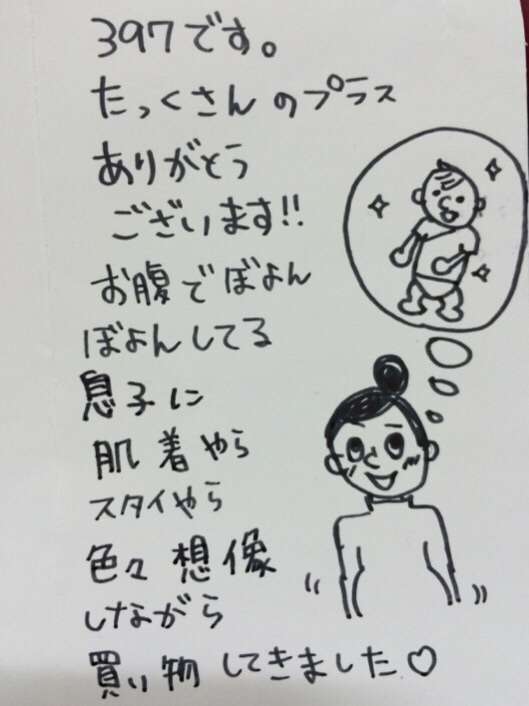 397です。
たっくさんのプラス
ありがとう
ございます!!
お腹でぼよん
ぼよんしてる
息子に
肌着やら
スタイやら
色々想像
しながら
買い物してきました♡